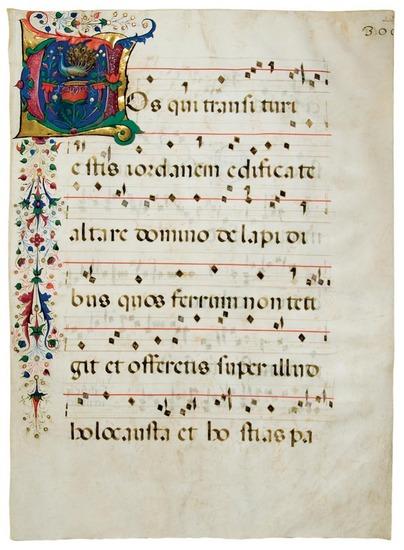 Vos qui transi turi
estis iordanem edifica te
altare domino de lapi di
bus quos ferrum non teti
git et offeretis super illud
holocausta et ho stias pa